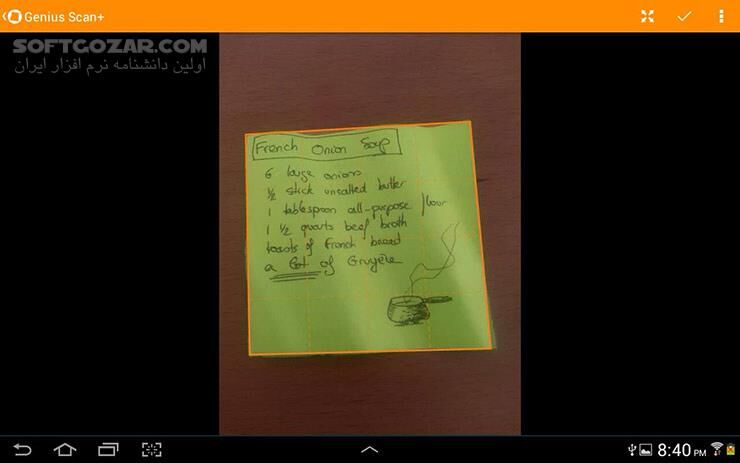 Genius Scan+
SOFTGOZAR.COM
اولین دانشنامه نرم افزار ایران
French Onion Soup
6 large onions
½ stick unsalted butter
1 tablespoon all-purpose flour
1 ½ quarts beef broth
toasts of French bread
a lot of Gruyère
8:40 PM